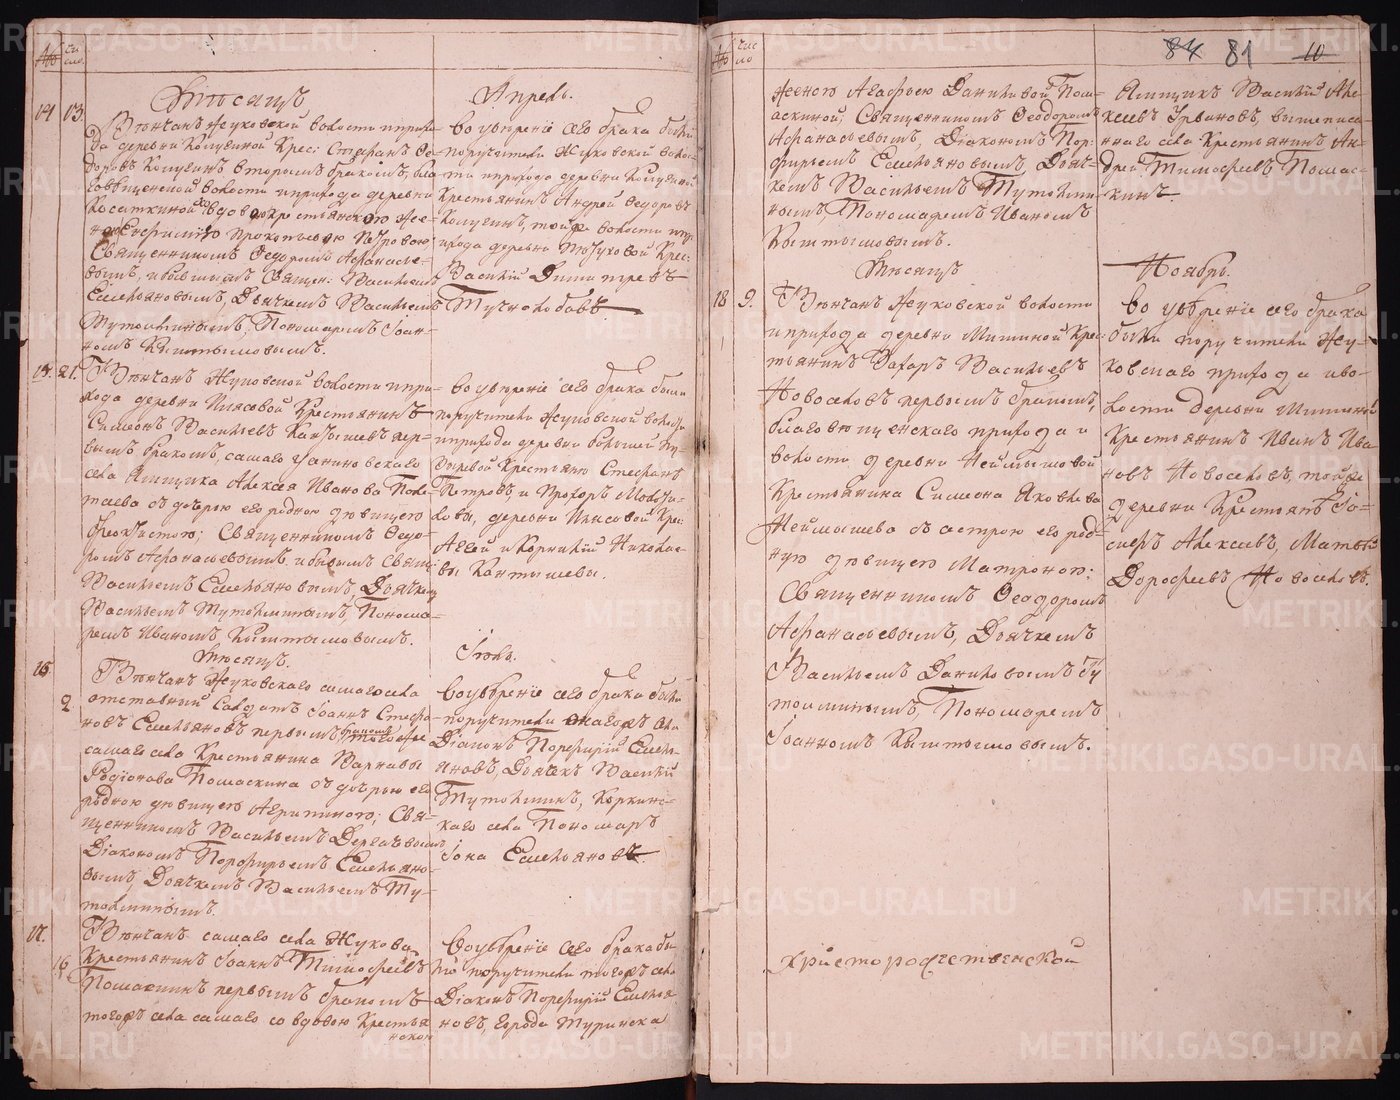 №
чи
сло.
Мѣсяцъ
Апрель.
14
13.
Вѣнчанъ Жуковской волости и прихо-
да деревни Копугиной Крес: Стефанъ Ѳе-
доровъ вторымъ бракомъ, Бла
говѣщенской волости и прихода деревни
вдовою крестьянскою же-
ною Прокопьевою Петровою,
Священникомъ Ѳедоромъ Аѳанасье-
вымъ, и бывшимъ Священ: Василіемъ
Емельяновымъ, Дьячкемъ Васильемъ
Тутолминымъ, Пономаремъ Іоан-
номъ Кыштымовымъ.
Во увѣреніе сего брака были
поручители Жуковской волос-
ти и прихода деревни
Крестьянинъ Андрей Ѳедоровъ
той же волости и при
хода деревни Крес:
Василій Димитревъ
15.
21.
Вѣнчанъ Жуковской волости и при-
хода деревни Илясовой Крестьянинъ
Симеонъ Васильевъ Кантышевъ пер-
вымъ бракомъ, самаго
села Ямщика Алексея Иванова
съ дочерью его родною дѣвицею
Феоктистою; Священникомъ Ѳедо-
ромъ Аѳанасьевымъ, и бывшимъ Свящ:
Васильемъ Емельяновымъ, Дьячкемъ
Васильемъ Тутолминымъ, Понома-
ремъ Иваномъ Кыштымовымъ.
во увѣреніе сего брака были
поручители Жуковской волости
и прихода деревни большей
Крестьяне Стефанъ
Петровъ, и Прохоръ
деревни Илясовой Крес:
и Корнилій Николае-
вы Кантышевы.
Мѣсяцъ.
Іюль.
16
2
Вѣнчанъ Жуковскаго самаго села
отставный Салдатъ Іоаннъ Стефа-
новъ Емельяновъ первымъ бракомъ того же
самаго села Крестьянина Варнавы
Родіонова Помаскина съ дочерью его
родною дѣвицею Агрипиною; Свя-
щенникомъ Васильемъ Державинымъ
Діакономъ Порфирьемъ Емельяно-
вымъ, Дьячкемъ Васильемъ Ту-
толминымъ.
Во увѣреніе сего брака были
поручители тогожъ села
Діаконъ Порфирій Емель-
яновъ, Дьячекъ Василій
Тутолминъ, Коркинс-
каго села Пономарь
Іона Емельяновъ.
17.
16
Вѣнчанъ самаго села Жукова
Крестьянинъ Іоаннъ Тимофеевъ
Помаскинъ первымъ бракомъ
тогожъ села самаго со вдовою Крестья
нскою
Во увѣреніе сего брака бы
ли поручители тогожъ села
Діаконъ Порфирій Емелья
новъ, города Туринска
№
чис
ло
84 81 10
женою Агафьею Даниловой Пом-
аскиной; Священникомъ Ѳеодоромъ
Аѳанасьевымъ, Діакономъ Пор-
фирьемъ Емельяновымъ, Дьяч-
кемъ Васильемъ Тутолми-
нымъ Пономаремъ Иваномъ
Кыштымовымъ.
Ямщикъ Василій Але-
ксеевъ Урвановъ, вышеписа-
ннаго села Крестьянинъ Ан-
дрей Тимофеевъ Помас-
кинъ.
Мѣсяцъ
Ноябрь.
18
9.
Вѣнчанъ Жуковской волости
и прихода деревни Митиной Крес-
тьянинъ Захаръ Васильевъ
Новоселовъ первымъ бракомъ,
благовѣщенскаго прихода и
волости деревни Неймышевой
Крестьянина Симеона Яковлева
Неймышева съ сестрою его род-
ною дѣвицею Матроною;
Священникомъ Ѳеодоромъ
Аѳанасьевымъ, Дьячкемъ
Васильемъ Даниловымъ Ту
толминымъ, Пономаремъ
Іоанномъ Кыштымовымъ.
Во увѣреніе сего брака
были поручители Жу-
ковскаго прихода и во-
лости деревни Митиной
Крестьянинъ Иванъ Ива
новъ Новоселовъ, той же
деревни Крестьяне Га-
Алексеевъ, Матвѣй
Дорофеевъ Новоселовъ.
Христорождественской